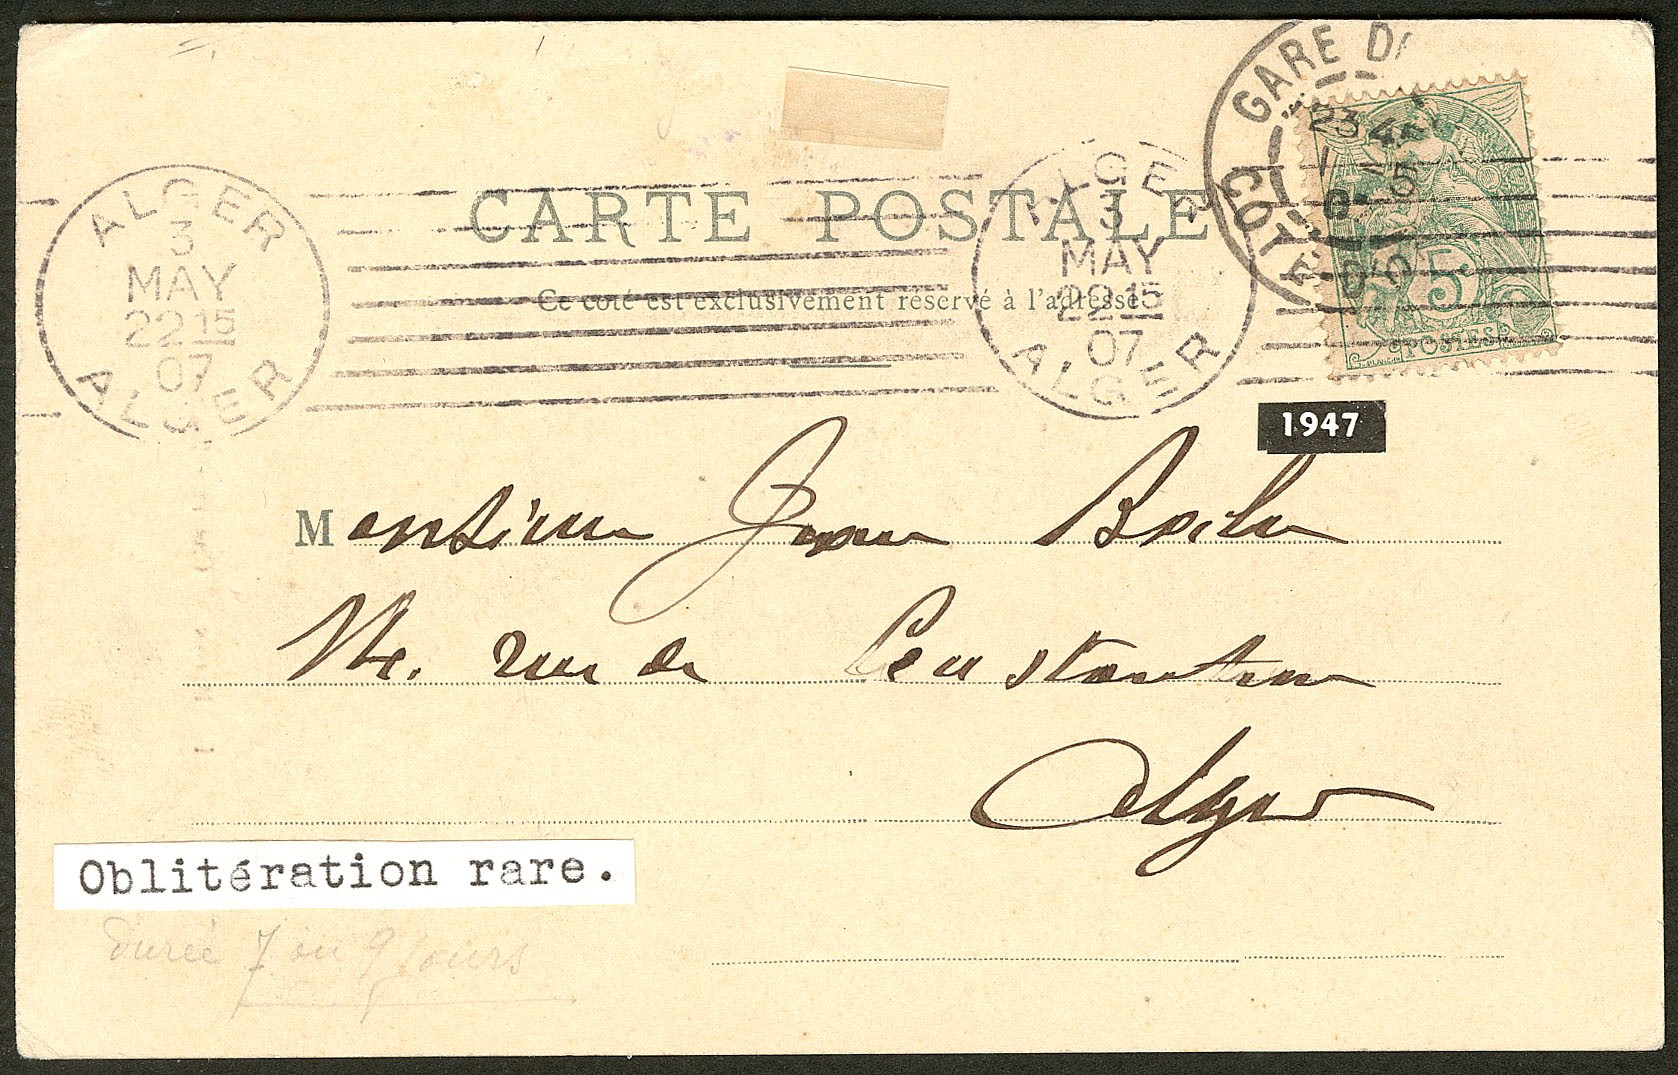 GARE D
23
5
COTE D'O
ALGER
3
MAY
22 15
07
ALGER
ALGER
3
MAY
22 15
07
ALGER
5
POSTES
CARTE POSTALE
Ce coté est exclusivement réservé à l'adresse
1947
Monsieur Jean
rue de Constantine
Alger
Oblitération rare.
durée 7 ou 9 jours